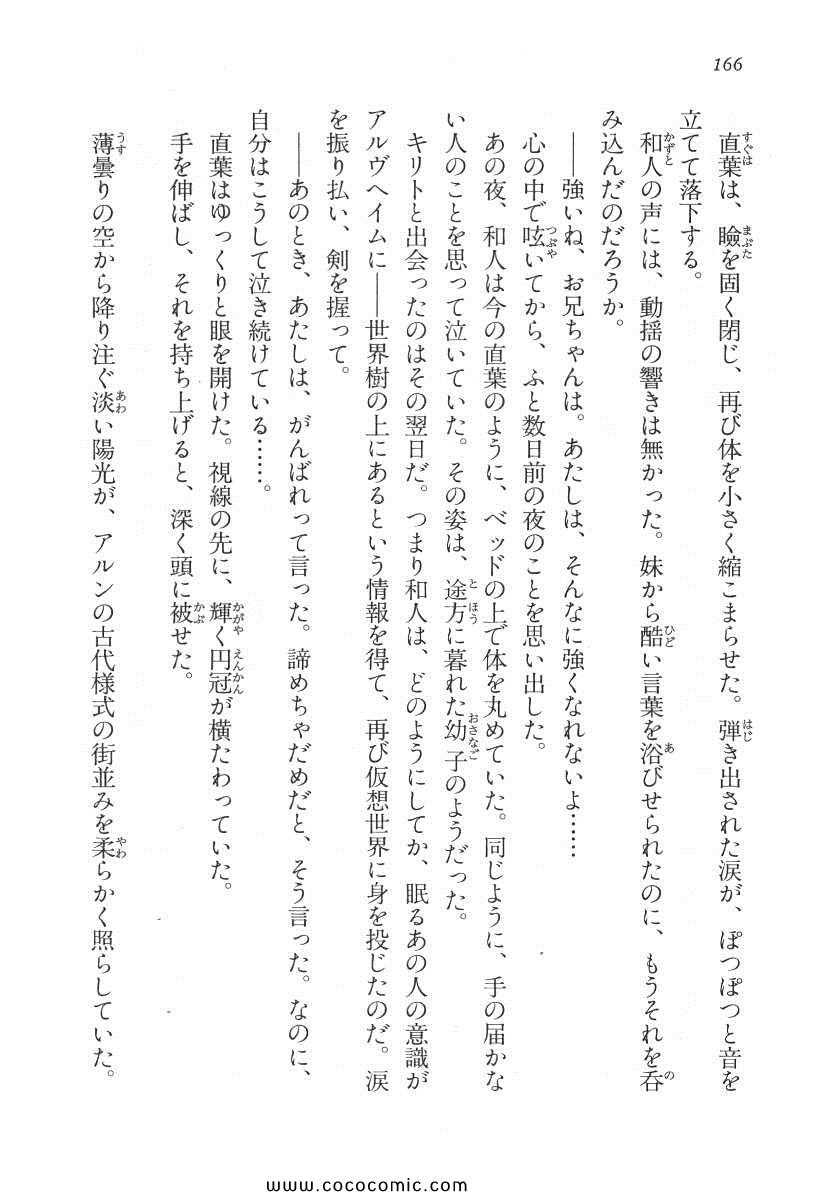 166
直葉は、瞼を固く閉じ、再び体を小さく縮こまらせた。弾き出された涙が、ぽつぽつと音を
立てて落下する。
和人の声には、動揺の響きは無かった。妹から酷い言葉を浴びせられたのに、もうそれを呑
み込んだのだろうか。
――強いね、お兄ちゃんは。あたしは、そんなに強くなれないよ……
心の中で呟いてから、ふと数日前の夜のことを思い出した。
あの夜、和人は今の直葉のように、ベッドの上で体を丸めていた。同じように、手の届かな
い人のことを思って泣いていた。その姿は、途方に暮れた幼子のようだった。
キリトと出会ったのはその翌日だ。つまり和人は、どのようにしてか、眠るあの人の意識が
アルヴヘイムに――世界樹の上にあるという情報を得て、再び仮想世界に身を投じたのだ。涙
を振り払い、剣を握って。
――あのとき、あたしは、がんばれって言った。諦めちゃだめだと、そう言った。なのに、
自分はこうして泣き続けている……。
直葉はゆっくりと眼を開けた。視線の先に、輝く円冠が横たわっていた。
手を伸ばし、それを持ち上げると、深く頭に被せた。
薄曇りの空から降り注ぐ淡い陽光が、アルンの古代様式の街並みを柔らかく照らしていた。
www.cococomic.com/